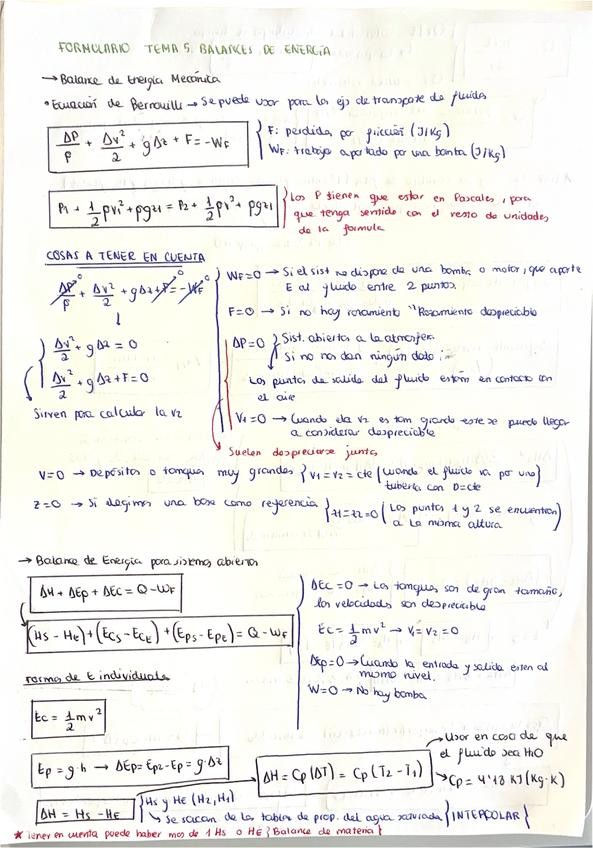 FORMULARIO TEMA 5. BALANCES DE ENERGÍA
→ Balance de Energía Mecánica
• Ecuación de Bernouilli → Se puede usar para los ejs de transporte de fluidos
ΔP/ρ + Δv²/2 + gΔz + F = -WF
F: perdidas por fricción (J/Kg)
WF: trabajo aportado por una bomba (J/Kg)
P1 + 1/2 ρv1² + ρgz1 = P2 + 1/2 ρv² + ρgz1
Los P tienen que estar en Pascales, para
que tenga sentido con el resto de unidades
de la formula
COSAS A TENER EN CUENTA
ΔP/ρ⁰ + Δv²/2 + gΔz + F⁰ = -WF⁰
↓
Δv²/2 + gΔz = 0
Δv²/2 + gΔz + F = 0
Sirven para calcular la v2
WF=0 → Si el sist no dispone de una bomba o motor, que aporte
E al fluido entre 2 puntos.
F=0 → Si no hay rozamiento "Rozamiento despreciable
ΔP=0 Sist. abiertos a la atmosfera
Si no nos dan ningún dato
Los puntos de salida del fluido están en contacto con
el aire
V1=0 → Cuando ela v2 es tan grande este se puede llegar
a considerar despreciable
Suelen despreciarse juntos
V=0 → Depósitos o tanques muy grandes { V1=V2=cte (Cuando el fluido va por una)
tubería con D=cte
Z=0 → Si elegimos una base como referencia { z1=z2=0 (Los puntos 1 y 2 se encuentran)
a la misma altura
→ Balance de Energía para sistemas abiertos
ΔH + ΔEp + ΔEC = Q - WF
(HS - HE) + (ECS - ECE) + (EPS - EPE) = Q - WF
ΔEC=0 → Los tanques son de gran tamaño,
las velocidades son despreciable
EC = 1/2 mv² → V1=V2=0
ΔEp=0 → Cuando la entrada y salida esten al
mismo nivel.
W=0 → No hay bomba.
Formas de E individuales
Ec = 1/2 mv²
Ep = g·h → ΔEp = Ep2 - Ep = g·Δz
ΔH = Cp (ΔT) = Cp (T2 - T1)
Usar en caso de que
el fluido sea H2O
Cp = 4'18 KJ (Kg·K)
ΔH = HS - HE
HS y HE (H2, H1)
Se sacan de las tablas de prop. del agua saturada {INTERPOLAR}
* Tener en cuenta puede haber mas de 1 HS o HE {Balance de materia}